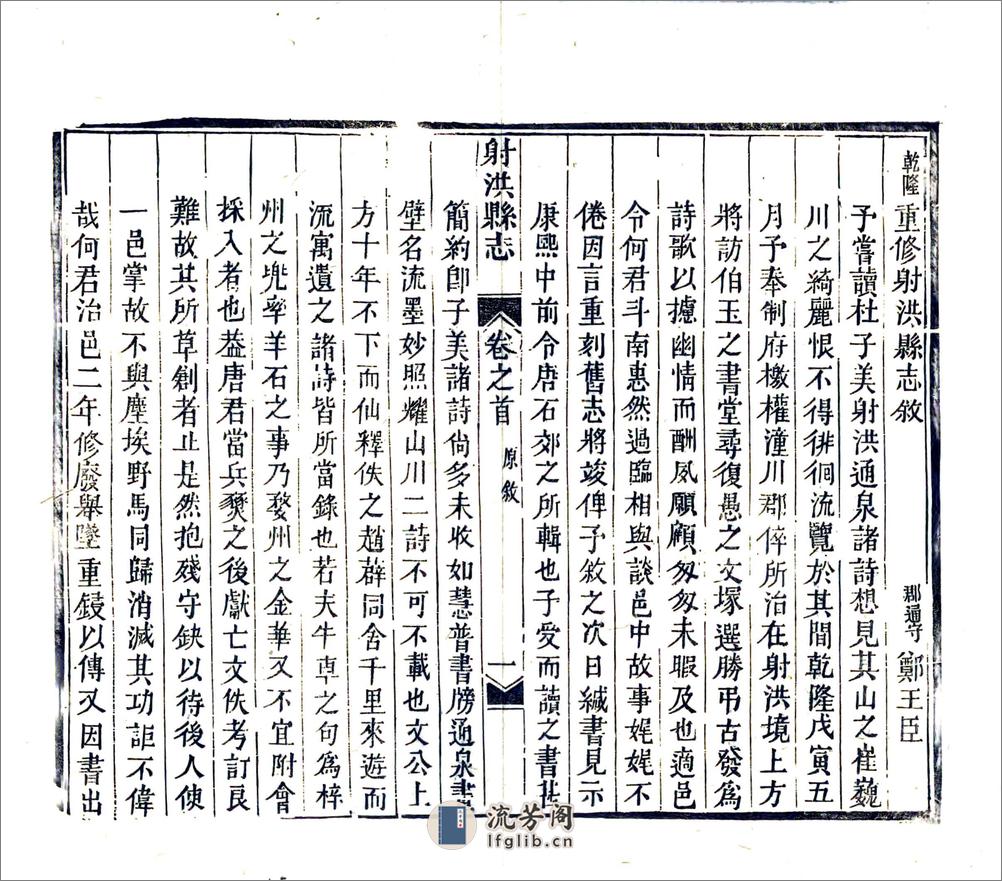 乾隆重修射洪縣志敘
郡通守 鄭王臣
予嘗讀杜子美射洪通泉諸詩想見其山之崔巍
川之綺麗恨不得徘徊流覽於其間乾隆戊寅五
月予奉制府檄權潼川郡倅所治在射洪境上方
將訪伯玉之書堂尋復愚之文塚選勝弔古發爲
詩歌以攄幽情而酬夙願顧匆匆未暇及也適邑
令何君斗南惠然過臨相與談邑中故事娓娓不
倦因言重刻舊志將竣俾予敘之次日緘書見示
康熙中前令唐石郊之所輯也予愛而讀之書
射洪縣志 卷之首 原敘 一
簡約卽子美諸詩尙多未收如慧普書牓通泉
壁名流墨妙照耀山川二詩不可不載也文公上
方十年不下而仙釋佚之趙蕤同舍千里來遊而
流寓遺之諸詩皆所當錄也若夫牛之句爲梓
州之兜率羊石之事乃婺州之金華又不宜附會
採入者也葢唐君當兵燹之後獻亡文佚考訂良
難故其所草創者止是然抱殘守缺以待後人使
一邑掌故不與塵埃野馬同歸消滅其功詎不偉
哉何君治邑二年修廢舉墜重鋟以傳又因書出
流芳阁
lfglib.cn